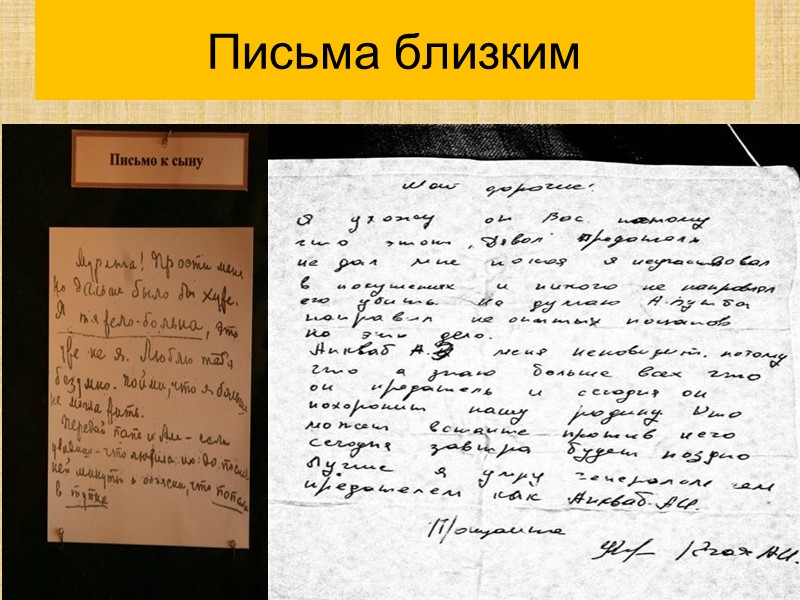 Письма близким
Письмо к сыну
Мурлыга! Прости меня,
но дальше было бы хуже.
Я тяжело-больна, это
уже не я. Люблю тебя
безумно. Пойми, что я больше
не могла жить.
Передай папе и Але - если
увидишь - что любила их до послед
ней минуты и объясни, что попала
в тупик
Мои дорогие!
Я ухожу от Вас потому
что этот, Дявол предатель
не дал мне покоя я неучаствовал
в покушениях и никого не направлял
его убить. Не думаю А.Кушба
направлял не опытных поцанов
на это дело.
Анкваб А.З меня неновидит. потому
что я знаю больше всех что
он предатель и сегодня он
похоронит нашу родину Кто
может встаньте против него
сегодня завтра будет поздно
Лучше я умру генералом чем
предателем как Анкваб АЗ.
Прощайте